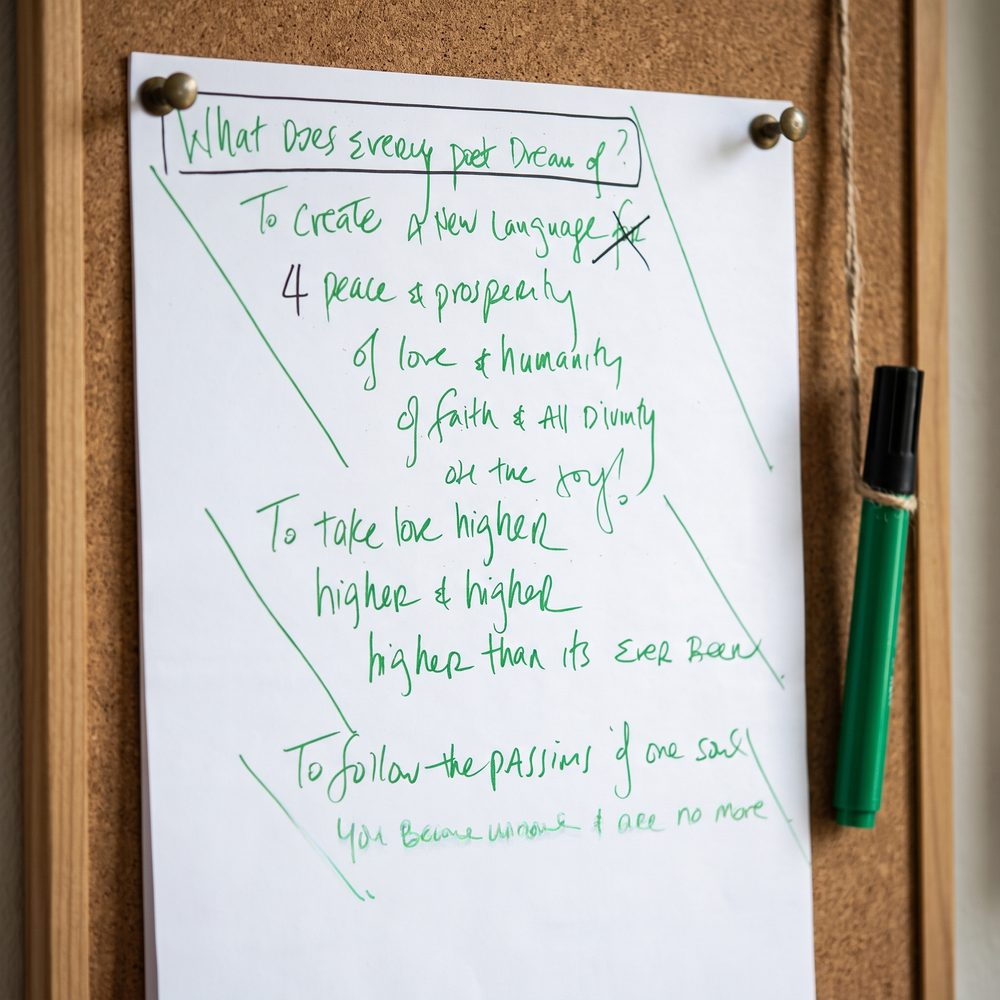 What Does Every poet Dream of?
To Create A New Language for
4 peace & prosperity
of love & humanity
of faith & All Divinity
oh the Joy!
To take love higher
higher & higher
higher than its Ever Been
To follow the passions of one soul
You Become & are no more